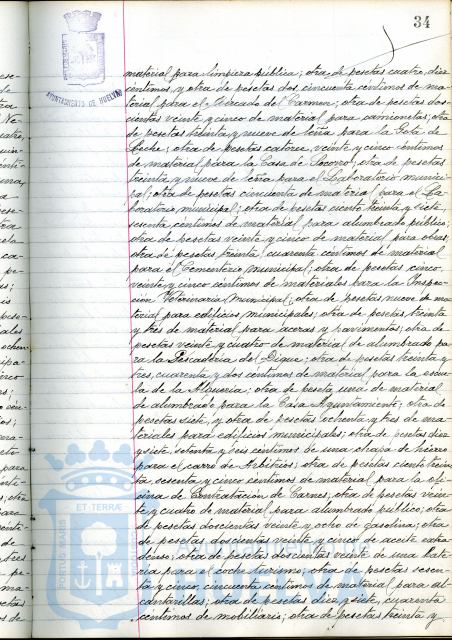 34
AYUNTAMIENTO DE HUELVA
material para limpieza pública; otra de pesetas cuatro, diez
céntimos, y otra de pesetas dos cincuenta céntimos de ma-
terial para el Mercado del Carmen; otra de pesetas dos-
cientas veinte y cinco de material para camionetas; otra
de pesetas treinta y nueve de leña para la Gota de
Leche; otra de pesetas catorce, veinte y cinco céntimos
de material para la Casa de Socorro; otra de pesetas
treinta y nueve de leña para el Laboratorio munici-
pal; otra de pesetas cincuenta de material para el La-
boratorio municipal; otra de pesetas ciento treinta y siete,
sesenta céntimos de material para alumbrado público;
otra de pesetas veinte y cinco de material para obras;
otra de pesetas treinta cuarenta céntimos de material
para el Cementerio municipal; otra de pesetas cinco,
veinte y cinco céntimos de materiales para la Inspec-
ción Veterinaria Municipal; otra de pesetas nueve de ma-
terial para edificios municipales; otra de pesetas treinta
y tres de material para aceras y pavimentos; otra de
pesetas veinte y cuatro de material de alumbrado pa-
ra la Pescadería del Dique; otra de pesetas treinta y
tres, cuarenta y dos céntimos de material para la escue-
la de la Alquería; otra de peseta una de material
de alumbrado para la Casa Ayuntamiento; otra de
pesetas siete, y otra de pesetas ochenta y tres de ma-
teriales para edificios municipales; otra de pesetas diez
y siete, setenta y seis céntimos de una chapa de hierro
para el carro de Arbitrios; otra de pesetas ciento trein-
ta, sesenta y cinco céntimos de material para la ofi-
cina de Contratación de Carnes; otra de pesetas vein-
te y cuatro de material para alumbrado público; otra
de pesetas doscientas veinte y ocho de gasolina; otra
de pesetas doscientas veinte y cinco de aceite extra
denso; otra de pesetas doscientas veinte de una bate-
ría para el coche turismo; otra de pesetas sesen-
ta y cinco, cincuenta céntimos de material para al-
cantarillas; otra de pesetas diez y siete, cuarenta
céntimos de mobiliario; otra de pesetas treinta y
PORTUS MARIS ET TERRÆ